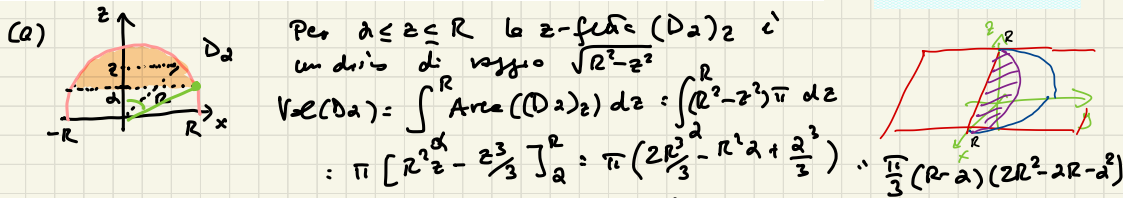 (a)
z
D₂
z
α
R
-R
R
x
Per α ≤ z ≤ R la z-fetta (Dα)z è
un disco di raggio √(R²-z²)
Vol(Dα) = ∫_α^R Area((Dα)z) dz = ∫_α^R (R²-z²)π dz
= π [R²z - z³/3]_α^R = π (2R³/3 - R²α + α³/3) = π/3 (R-α)(2R²-αR-α²)
z
R
R
x
y